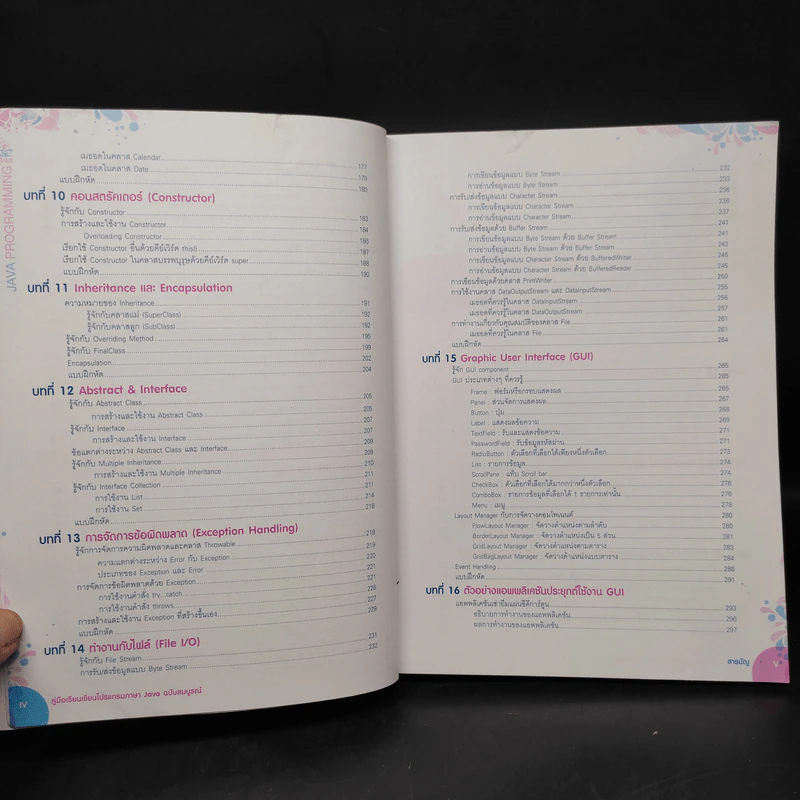 JAVA PROGRAMMING
เมธอดในคลาส Calendar 177
เมธอดในคลาส Date 179
แบบฝึกหัด 180
บทที่ 10 คอนสตรัคเตอร์ (Constructor)
รู้จักกับ Constructor 183
การสร้างและใช้งาน Constructor 184
Overloading Constructor 186
เรียกใช้ Constructor อื่นด้วยคีย์เวิร์ด this() 187
เรียกใช้ Constructor ในคลาสบรรพบุรุษด้วยคีย์เวิร์ด super 188
แบบฝึกหัด 190
บทที่ 11 Inheritance และ Encapsulation
ความหมายของ Inheritance 191
รู้จักกับคลาสแม่ (SuperClass) 192
รู้จักกับคลาสลูก (SubClass) 192
รู้จักกับ Overriding Method 195
รู้จักกับ FinalClass 199
Encapsulation 202
แบบฝึกหัด 204
บทที่ 12 Abstract & Interface
รู้จักกับ Abstract Class 205
การสร้างและใช้งาน Abstract Class 205
รู้จักกับ Interface 207
การสร้างและใช้งาน Interface 207
ข้อแตกต่างระหว่าง Abstract Class และ Interface 209
รู้จักกับ Multiple Inheritance 209
การสร้างและใช้งาน Multiple Inheritance 210
รู้จักกับ Interface Collection 211
การใช้งาน List 211
การใช้งาน Set 214
แบบฝึกหัด 218
บทที่ 13 การจัดการข้อผิดพลาด (Exception Handling)
รู้จักการจัดการความผิดพลาดและคลาส Throwable 219
ความแตกต่างระหว่าง Error กับ Exception 219
ประเภทของ Exception และ Error 220
การจัดการข้อผิดพลาดด้วย Exception 221
การใช้งานคำสั่ง try...catch 221
การใช้งานคำสั่ง throws 226
การสร้างและใช้งาน Exception ที่สร้างขึ้นเอง 227
แบบฝึกหัด 229
บทที่ 14 ทำงานกับไฟล์ (File I/O)
รู้จักกับ File Stream 231
การรับ/ส่งข้อมูลแบบ Byte Stream 232
IV คู่มือเรียนเขียนโปรแกรมภาษา Java ฉบับสมบูรณ์
การเขียนข้อมูลแบบ Byte Stream 232
การอ่านข้อมูลแบบ Byte Stream 233
การรับ/ส่งข้อมูลแบบ Character Stream 236
การเขียนข้อมูลแบบ Character Stream 236
การอ่านข้อมูลแบบ Character Stream 237
การรับ/ส่งข้อมูลด้วย Buffer Stream 241
การเขียนข้อมูลแบบ Byte Stream ด้วย Buffer Stream 241
การอ่านข้อมูลแบบ Byte Stream ด้วย Buffer Stream
การเขียนข้อมูลแบบ Character Stream ด้วย BufferedWriter 245
การอ่านข้อมูลแบบ Character Stream ด้วย BufferedReader
การเขียนข้อมูลด้วยคลาส PrintWriter 250
การใช้งานคลาส DataOutputStream และ DataInputStream 255
เมธอดที่ควรรู้ในคลาส DataInputStream 255
เมธอดที่ควรรู้ในคลาส DataOutputStream
การทำงานเกี่ยวกับคุณสมบัติของคลาส File 261
เมธอดที่ควรรู้ในคลาส File 261
แบบฝึกหัด 264
บทที่ 15 Graphic User Interface (GUI)
รู้จัก GUI component 265
GUI ประเภทต่างๆ ที่ควรรู้ 265
Frame : ฟอร์มหรือกรอบแสดงผล 265
Panel : ส่วนจัดการแสดงผล 267
Button : ปุ่ม 268
Label : แสดงผลข้อความ 269
TextField : รับและแสดงข้อความ 271
PasswordField : รับข้อมูลรหัสผ่าน 271
RadioButton : ตัวเลือกที่เลือกได้เพียงหนึ่งตัวเลือก 273
List : รายการข้อมูล 274
ScrollPane : แท็บ Scroll bar 274
CheckBox : ตัวเลือกที่เลือกได้มากกว่าหนึ่งตัวเลือก 276
ComboBox : รายการข้อมูลที่เลือกได้ 1 รายการเท่านั้น 276
Menu : เมนู 278
Layout Manager กับการจัดวางคอมโพเนนต์ 280
FlowLayout Manager : จัดวางตำแหน่งตามลำดับ 280
BorderLayout Manager : จัดวางตำแหน่งเป็น 5 ส่วน 281
GridLayout Manager : จัดวางตำแหน่งตามตาราง 282
GridBagLayout Manager : จัดวางตำแหน่งแบบตาราง 284
Event Handling 286
แบบฝึกหัด 291
บทที่ 16 ตัวอย่างแอพพลิเคชันประยุกต์ใช้งาน GUI
แอพพลิเคชันเช่ายืมแผ่นซีดีการ์ตูน 293
อธิบายการทำงานของแอพพลิเคชัน 296
ผลการทำงานของแอพพลิเคชัน 297
สารบัญ V